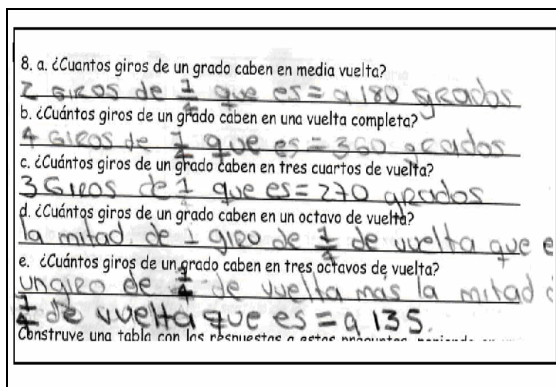 8. a. ¿Cuantos giros de un grado caben en media vuelta?
2 GIROS de 1/4 que es = a 180 grados
b. ¿Cuántos giros de un grado caben en una vuelta completa?
4 GIROS de 1/4 que es = 360 grados
c. ¿Cuántos giros de un grado caben en tres cuartos de vuelta?
3 GIROS de 1/4 que es = 270 grados
d. ¿Cuántos giros de un grado caben en un octavo de vuelta?
la mitad de 1 giro de 1/4 de vuelta que e
e. ¿Cuántos giros de un grado caben en tres octavos de vuelta?
un giro de 1/4 de vuelta mas la mitad d
1/4 de vuelta que es = a 135.
Construye una tabla con las respuestas a estas preguntas